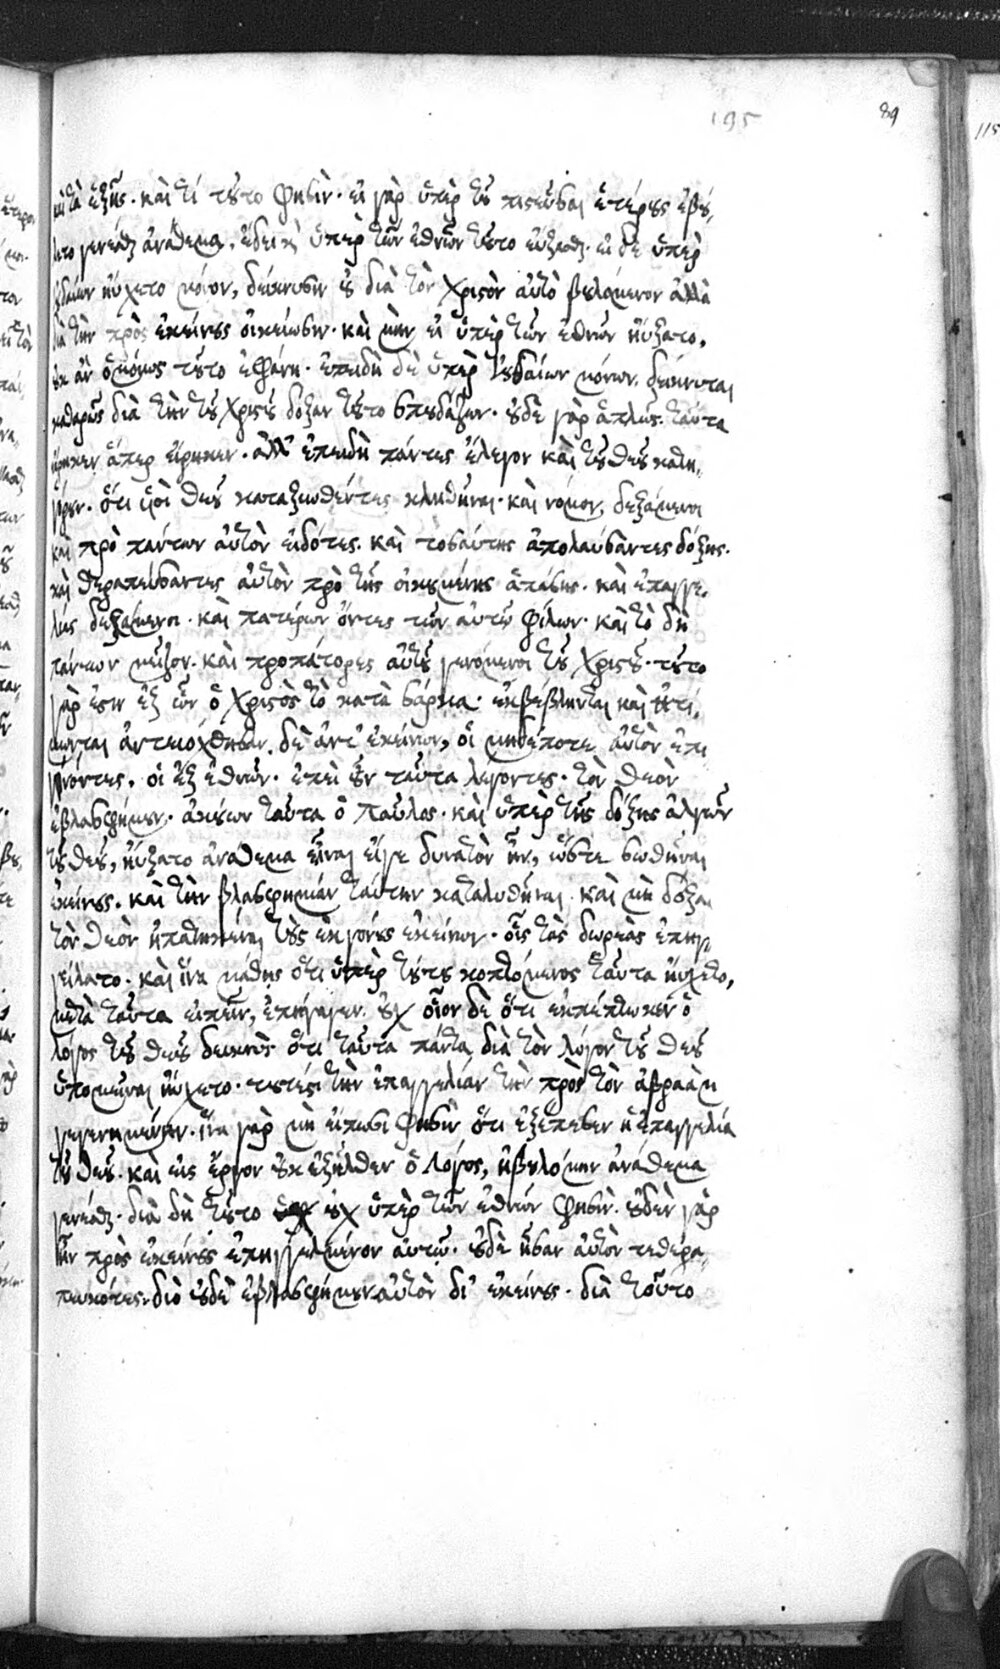 195
89
115
καὶ τὰ ἑξῆς. καὶ τί τοῦτο φησίν. εἰ γὰρ ὑπὲρ τοῦ πιστεῦσαι ἑτέρους ἐβού,
λετο γενέσθαι ἀνάθεμα, ἔδει καὶ ὑπὲρ τῶν ἐθνῶν τοῦτο εὔξασθαι. εἰ δὲ ὑπὲρ
ἰουδαίων ηὔχετο μόνον, δείκνυσιν οὐ διὰ τὸν χριστὸν αὐτὸ βουλόμενον ἀλλὰ
διὰ τὴν πρὸς ἐκείνους οἰκείωσιν. καὶ μὴν εἰ ὑπὲρ τῶν ἐθνῶν ηὔξατο,
οὐκ ἂν ὁμοίως τοῦτο ἐφάνη. ἐπειδὴ δὲ ὑπὲρ ἰουδαίων μόνων. δείκνυται
καθαρῶς διὰ τὴν τοῦ χριστοῦ δόξαν τοῦτο σπουδάζων. οὐδὲ γὰρ ἁπλῶς ταῦτα
εἴρηκεν ἅπερ εἴρηκεν. ἀλλ' ἐπειδὴ πάντες ἔλεγον καὶ τοῦ θεοῦ κατη,
γόρουν. ὅτι υἱοὶ θεοῦ καταξιωθέντες κληθῆναι. καὶ νόμον δεξάμενοι
καὶ πρὸ πάντων αὐτὸν εἰδότες. καὶ τοσαύτης ἀπολαύσαντες δόξης.
καὶ θεραπεύσαντες αὐτὸν πρὸ τῆς οἰκουμένης ἁπάσης. καὶ ἐπαγγε,
λίας δεξάμενοι. καὶ πατέρων ὄντες τῶν αὐτῷ φίλων. καὶ τὸ δὴ
πάντων μεῖζον. καὶ προπάτορες αὐτοῦ γενόμενοι τοῦ χριστοῦ. τοῦτο
γάρ ἐστιν ἐξ ὧν ὁ χριστὸς τὸ κατὰ σάρκα. ἐκβέβληνται καὶ ἠτί,
μωνται ἀντεισήχθησαν δὲ ἀντ' ἐκείνων, οἱ μηδέποτε αὐτὸν ἐπι
γνόντες. οἱ ἐξ ἐθνῶν. ἐπεὶ οὖν ταῦτα λέγοντες. τὸν θεὸν
ἐβλασφήμουν. ἀκούων ταῦτα ὁ παῦλος. καὶ ὑπὲρ τῆς δόξης ἀλγῶν
τοῦ θεοῦ, ηὔξατο ἀνάθεμα εἶναι εἴγε δυνατὸν ἦν, ὥστε σωθῆναι
ἐκείνους. καὶ τὴν βλασφημίαν ταύτην καταλυθῆναι. καὶ μὴ δόξαι
τὸν θεὸν ἠπατηκέναι τοὺς ἐκγόνους ἐκείνων. οἷς τὰς δωρεὰς ἐπηγ
γείλατο. καὶ ἵνα μάθῃς ὅτι ὑπὲρ τούτου κοπτόμενος ταῦτα ηὔχετο,
μετὰ ταῦτα εἰπεῖν, ἐπήγαγεν. οὐχ οἷον δὲ ὅτι ἐκπέπτωκεν ὁ
λόγος τοῦ θεοῦ δεικνὺς ὅτι ταῦτα πάντα διὰ τὸν λόγον τοῦ θεοῦ
ὑπομεῖναι ηὔχετο. τουτέστι τὴν ἐπαγγελίαν τὴν πρὸς τὸν ἀβραὰμ
γεγενημένην. ἵνα γὰρ μὴ εἴπωσι φησὶν ὅτι ἐξέπεσεν ἡ ἐπαγγελία
τοῦ θεοῦ. καὶ εἰς ἔργον οὐκ ἐξῆλθεν ὁ λόγος, ἠβουλόμην ἀνάθεμα
γενέσθαι. διὰ δὴ τοῦτο οὐχ ὑπὲρ τῶν ἐθνῶν φησίν. οὐδὲν γὰρ
ἦν πρὸς ἐκείνους ἐπηγγελμένον αὐτῷ. οὐδὲ ἦσαν αὐτὸν τεθερα,
πευκότες. διὸ οὐδὲ ἐβλασφήμουν αὐτὸν δι' ἐκείνους. διὰ τοῦτο